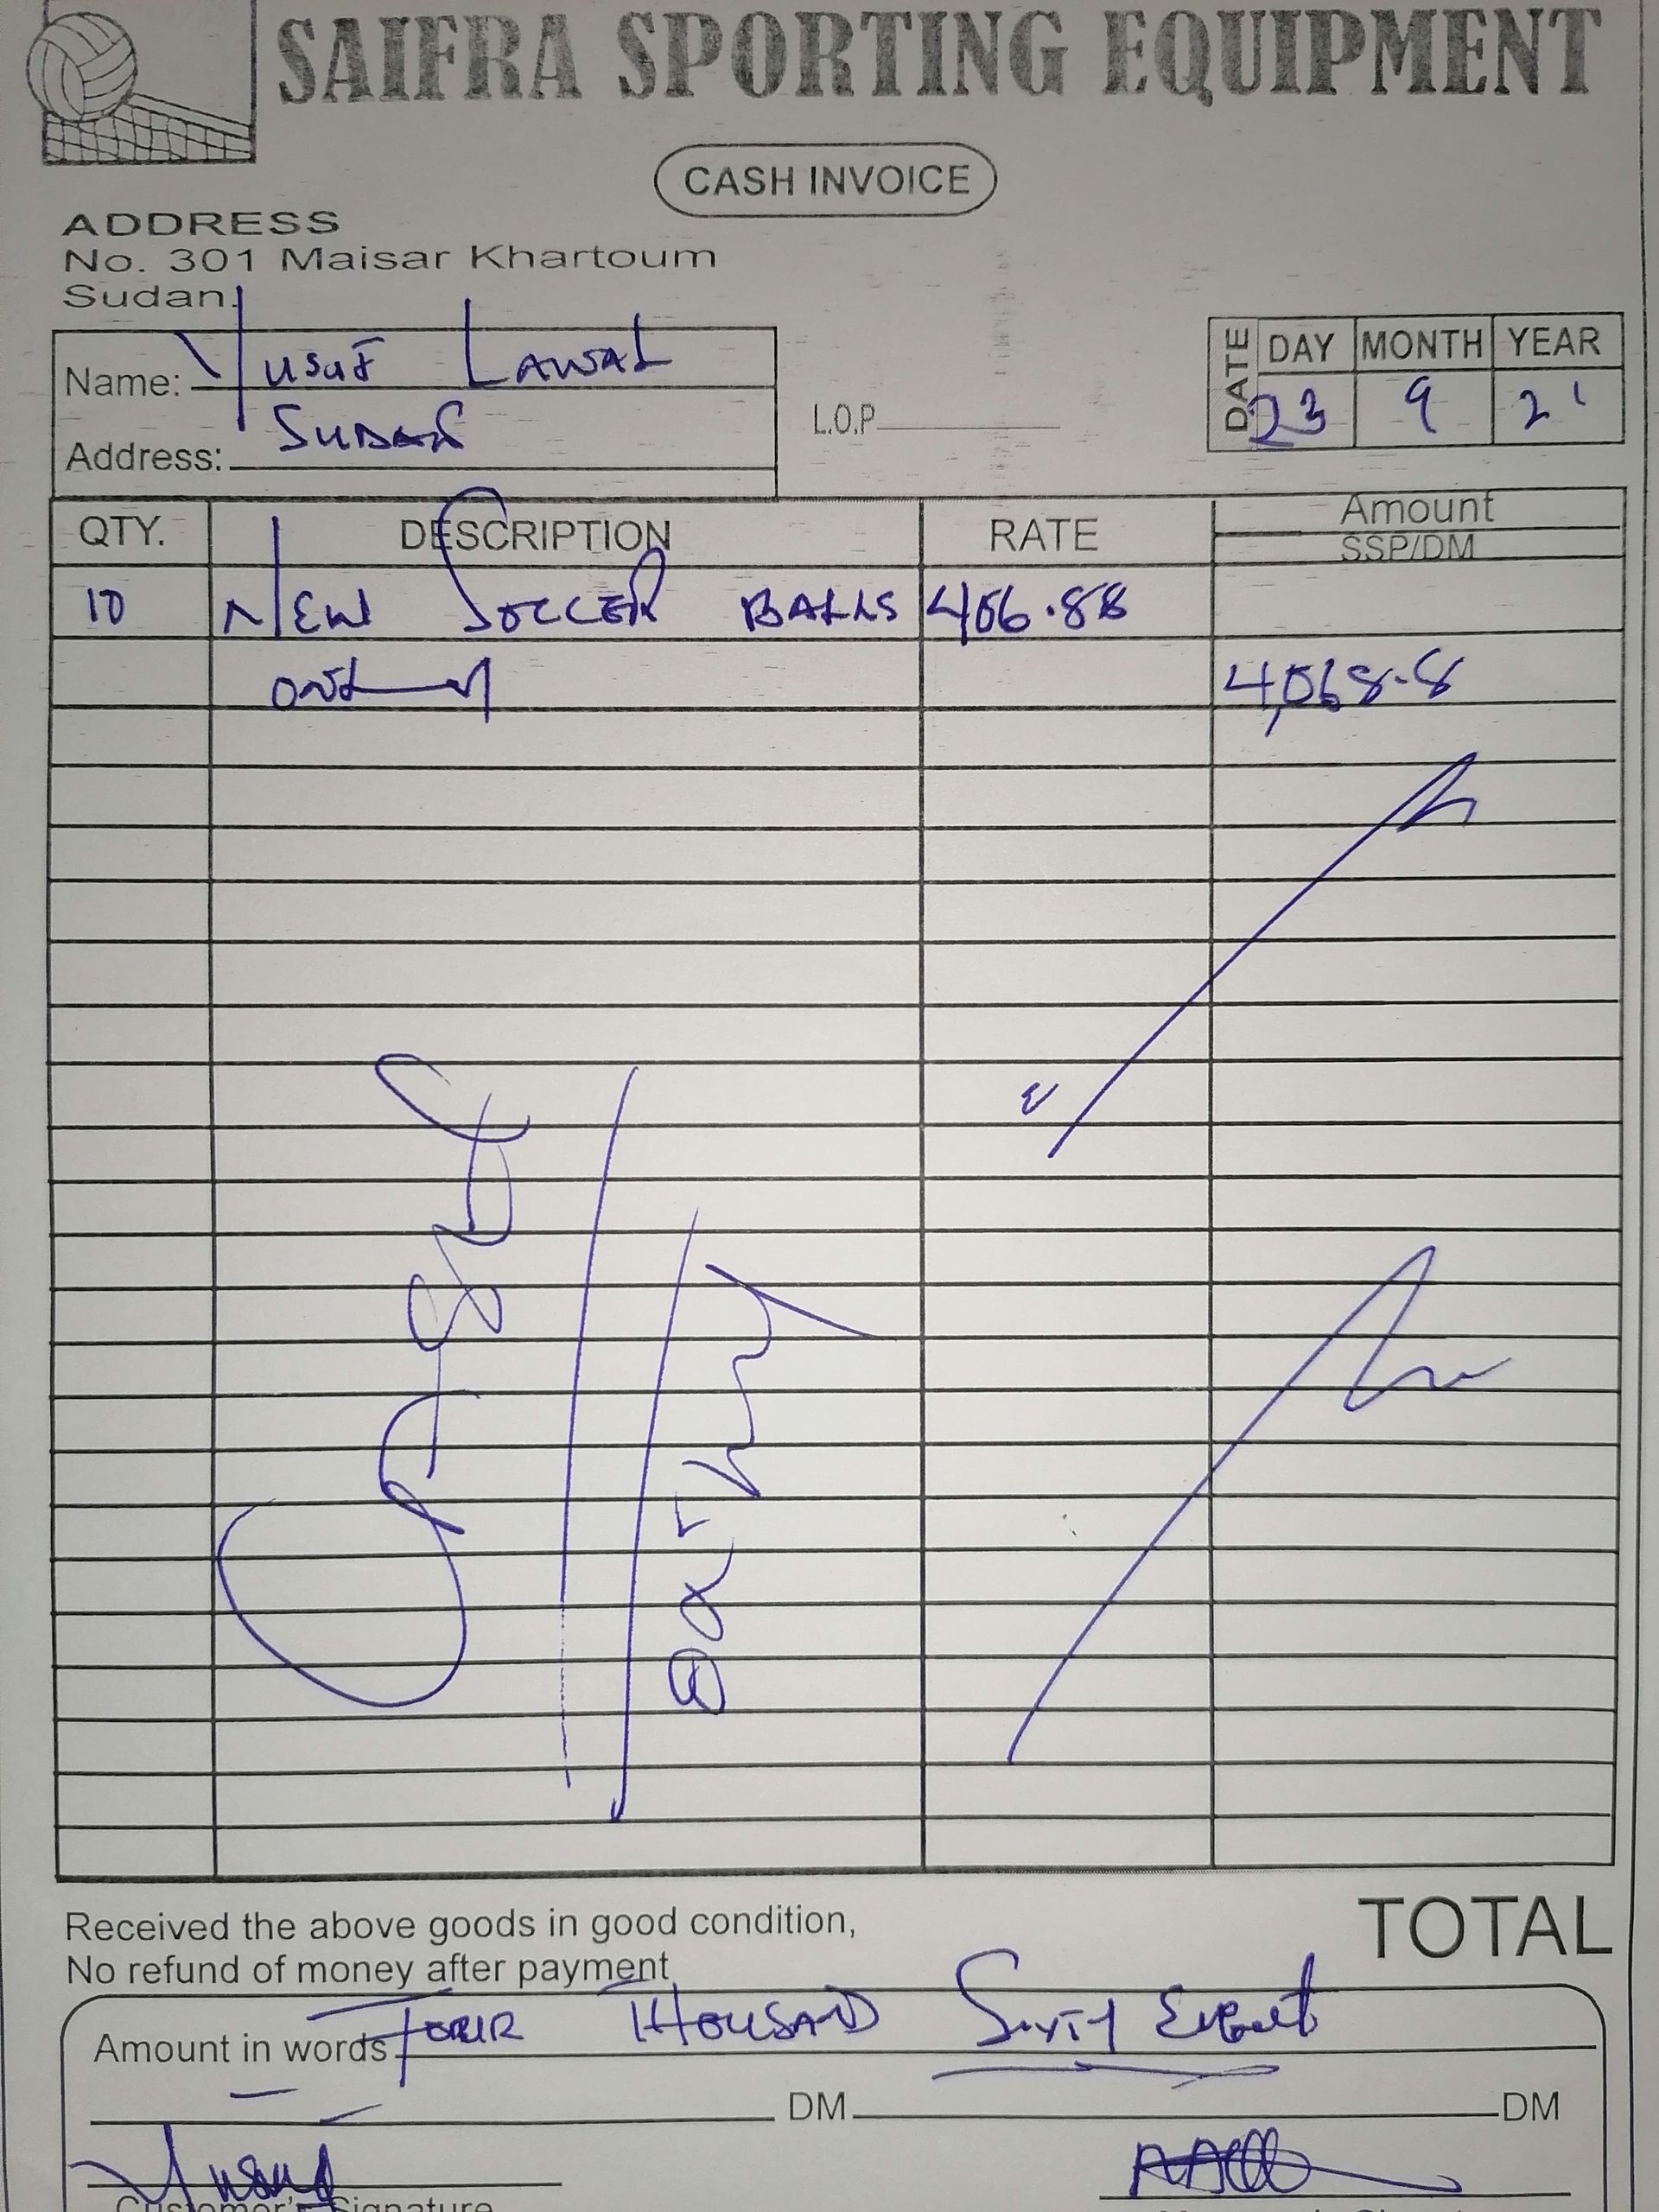 SAIFRA SPORTING EQUIPMENT
CASH INVOICE
ADDRESS
No. 301 Maisar Khartoum
Sudan.
Name: Yusuf Lawal
Address: Sudan
L.O.P
DATE DAY MONTH YEAR
23 9 21
QTY. DESCRIPTION RATE Amount
SSP/DM
10 NEW SOCCER BALLS 406.88
only 4,068.8
Received the above goods in good condition,
No refund of money after payment
TOTAL
Amount in words FOUR THOUSAND SIXTY Eight
DM DM
Customer's Signature